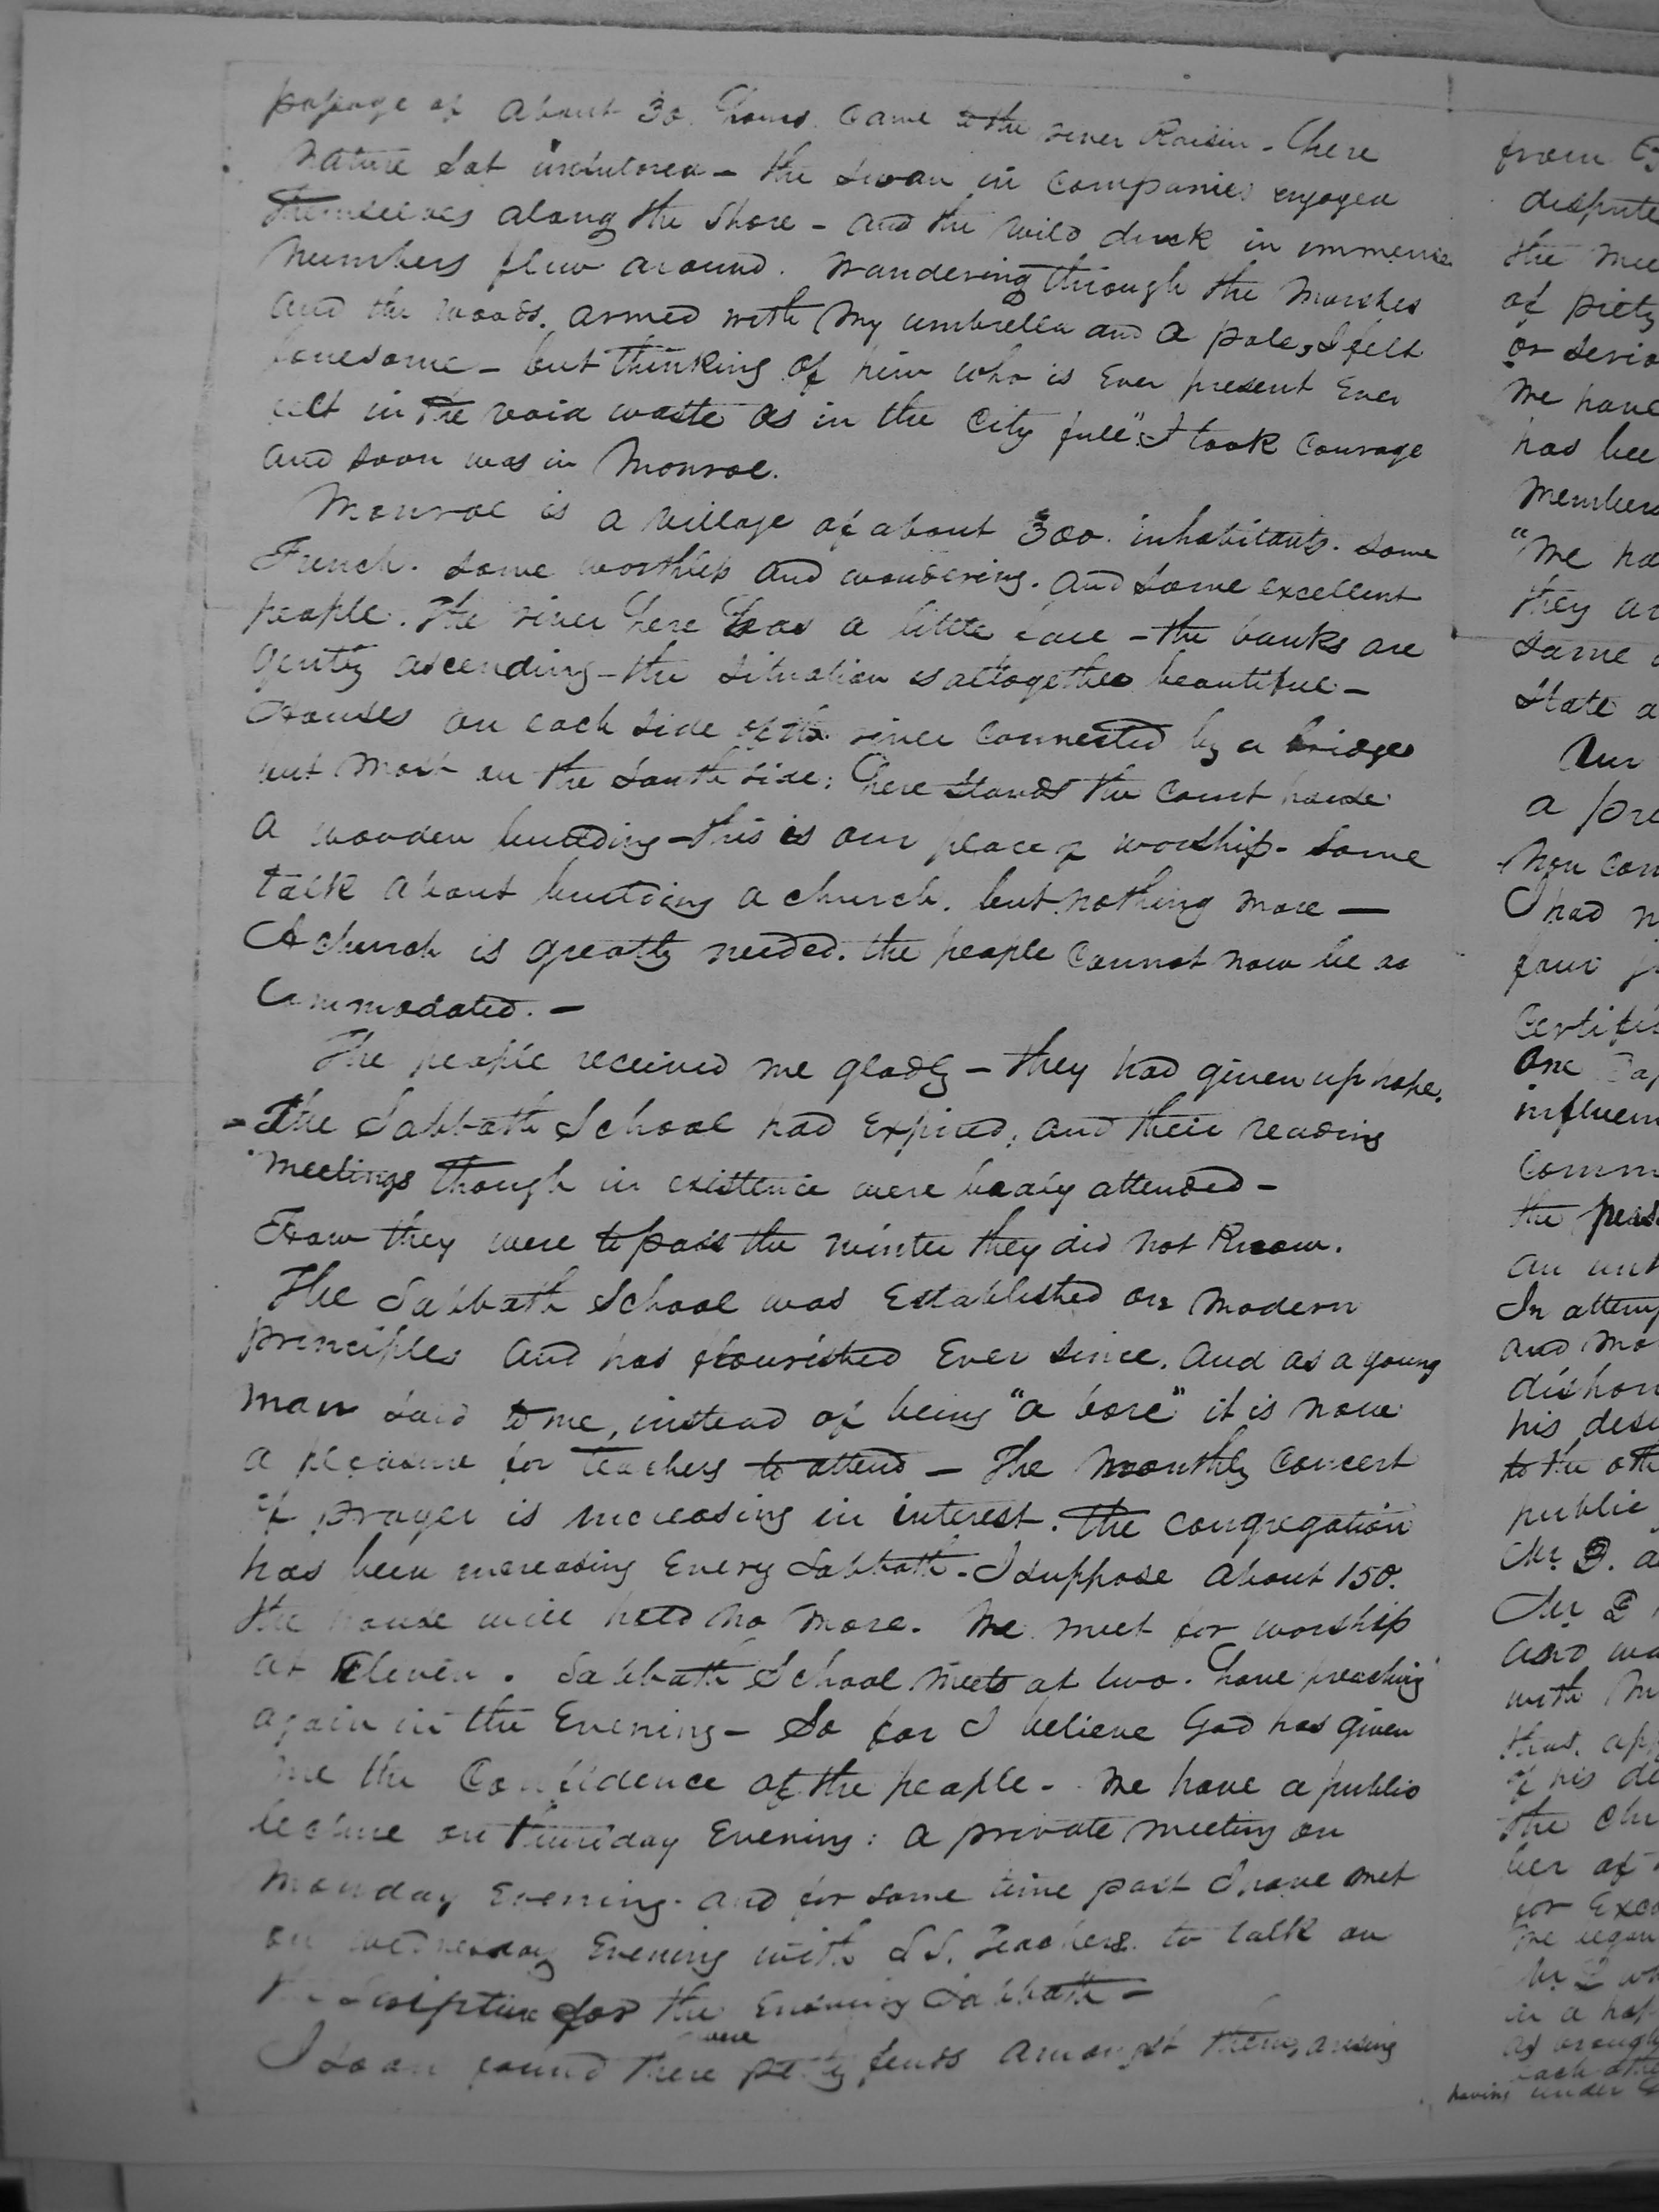 passage of about 30 hours came to the river Raisin - here
nature sat untutored - the swan in companies enjoyed
themselves along the shore - and the wild duck in immense
numbers flew around. Wandering through the marshes
and the woods, armed with my umbrella and a pole, I felt
lonesome - but thinking of him who is "Ever present Ever
felt in the void waste as in the City full" I took Courage
and soon was in Monroe.
Monroe is a village of about 300. inhabitants. some
French. some worthless and wandering. and some excellent
people. The river here has a little - the banks are
gently ascending - the situation is altogether beautiful -
Houses on each side of the river connected by a bridge
but most on the South side: here stands the Court house
a wooden building - this is our place of worship. Some
talk about building a church. but nothing more -
A church is greatly needed. the people Cannot now be ac
commodated. -
The people received me gladly - they had given up hope.
- The Sabbath School had Expired, and their reading
meetings though in existence were badly attended -
How they were to pass the winter they did not Know.
The Sabbath School was Established on modern
principles and has flourished Ever since. and as a young
man said to me, instead of being "a bore" it is now
a pleasure for teachers to attend - The Monthly Concert
of prayer is increasing in interest. The congregation
has been increasing Every Sabbath. I suppose about 150.
the house will hold no more. We meet for worship
at Eleven. Sabbath School meets at two. have preaching
again in the Evening - So far I believe God has given
me the Confidence of the people - We have a public
lecture on Thursday Evening: a private meeting on
Monday Evening. and for some time past I have met
on Wednesday Evening with S S. Teachers to talk on
the Scripture for the Ensuing Sabbath -
I soon found there were petty feuds amongst them, arising
from
dispute
the
of piety
or
We have
has
members
"We
they
same
State
Our
a
You
I had
four
Certifi
One
influen
Comm
the
an
In attemp
and
dishon
his
to the oth
public
Mr. D.
Mr D
and
with
that,
of his
the
ber of
for
We
Mr D
in a
as
each
having under